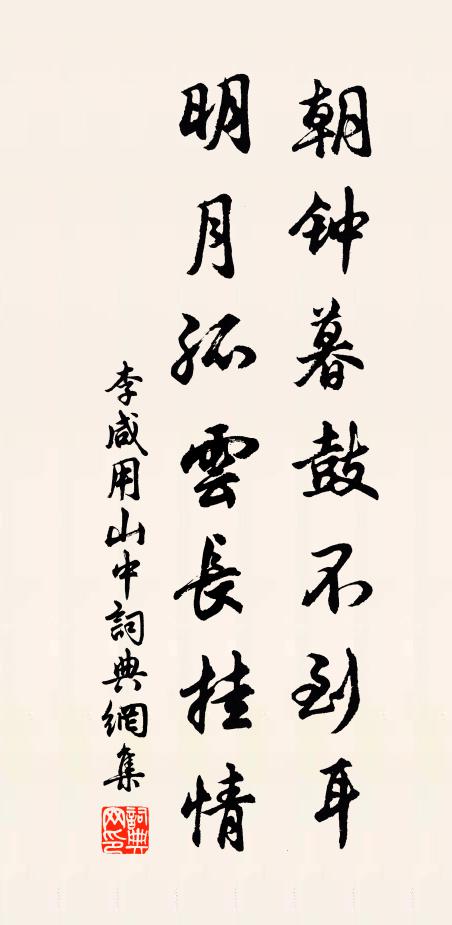 朝钟暮鼓不到耳
明月孤雲長挂情
李咸用山中詞典網集
詞典
网印